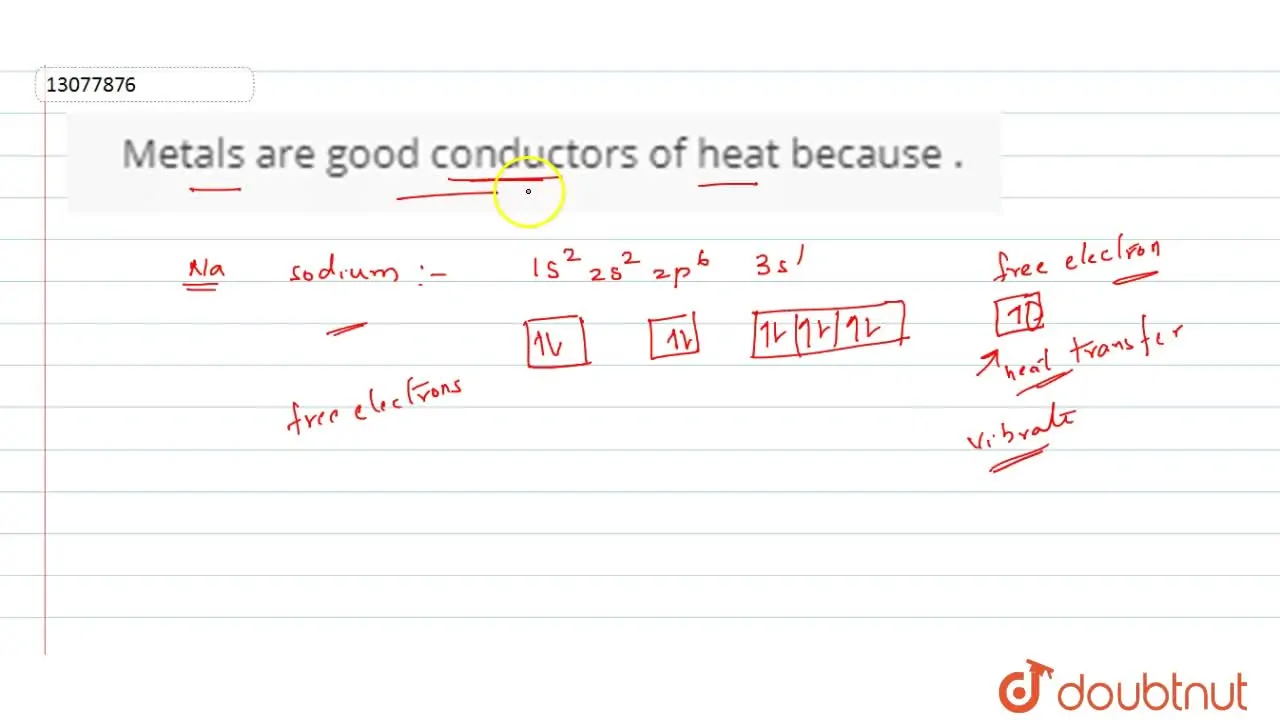 13077876
Metals are good conductors of heat because .
Na sodium :- 1s² 2s² 2p⁶ 3s¹ free electron
1↓ 1↓ 1↓ 1↓ 1↓ 1
heat transfer
free electrons
vibrate
doubtnut